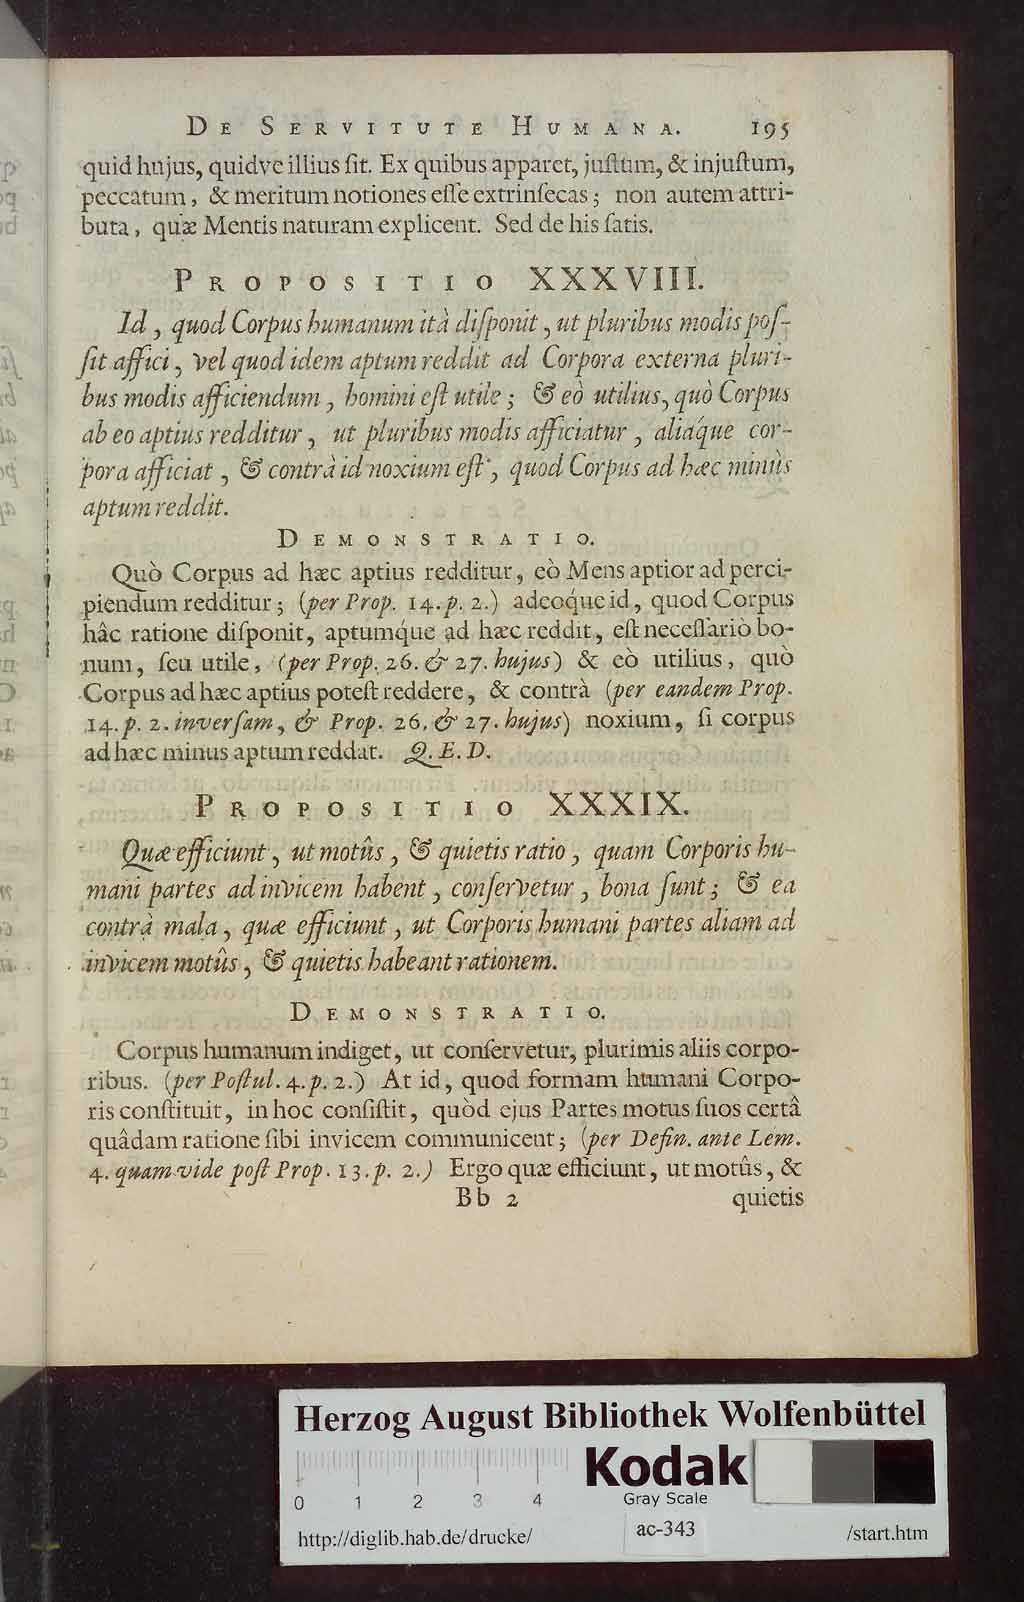 DE SERVITUTE HUMANA. 195
quid hujus, quidve illius ſit. Ex quibus apparet, juſtum, & injuſtum,
peccatum, & meritum notiones eſſe extrinſecas; non autem attri-
buta, quæ Mentis naturam explicent. Sed de his ſatis.
PROPOSITIO XXXVIII.
Id, quod Corpus humanum ità diſponit, ut pluribus modis poſ-
ſit affici, vel quod idem aptum reddit ad Corpora externa pluri-
bus modis afficiendum, homini eſt utile; & eò utilius, quò Corpus
ab eo aptius redditur, ut pluribus modis afficiatur, aliáque cor-
pora afficiat, & contrà id noxium eſt, quod Corpus ad hæc minùs
aptum reddit.
DEMONSTRATIO.
Quò Corpus ad hæc aptius redditur, eò Mens aptior ad perci-
piendum redditur; (per Prop. 14. p. 2.) adeoque id, quod Corpus
hâc ratione diſponit, aptumque ad hæc reddit, eſt neceſſariò bo-
num, ſeu utile, (per Prop. 26. & 27. hujus) & eò utilius, quò
Corpus ad hæc aptius poteſt reddere, & contrà (per eandem Prop.
14. p. 2. inverſam, & Prop. 26. & 27. hujus) noxium, ſi corpus
ad hæc minus aptum reddat. Q. E. D.
PROPOSITIO XXXIX.
Quæ efficiunt, ut motûs, & quietis ratio, quam Corporis hu-
mani partes ad invicem habent, conſervetur, bona ſunt; & ea
contrà mala, quæ efficiunt, ut Corporis humani partes aliam ad
invicem motûs, & quietis habeant rationem.
DEMONSTRATIO.
Corpus humanum indiget, ut conſervetur, plurimis aliis corpo-
ribus. (per Poſtul. 4. p. 2.) At id, quod formam humani Corpo-
ris conſtituit, in hoc conſiſtit, quòd ejus Partes motus ſuos certâ
quâdam ratione ſibi invicem communicent; (per Defin. ante Lem.
4. quam vide poſt Prop. 13. p. 2.) Ergo quæ efficiunt, ut motûs, &
Bb 2 quietis
Herzog August Bibliothek Wolfenbüttel
Kodak
Gray Scale
0 1 2 3 4
http://diglib.hab.de/drucke/ ac-343 /start.htm